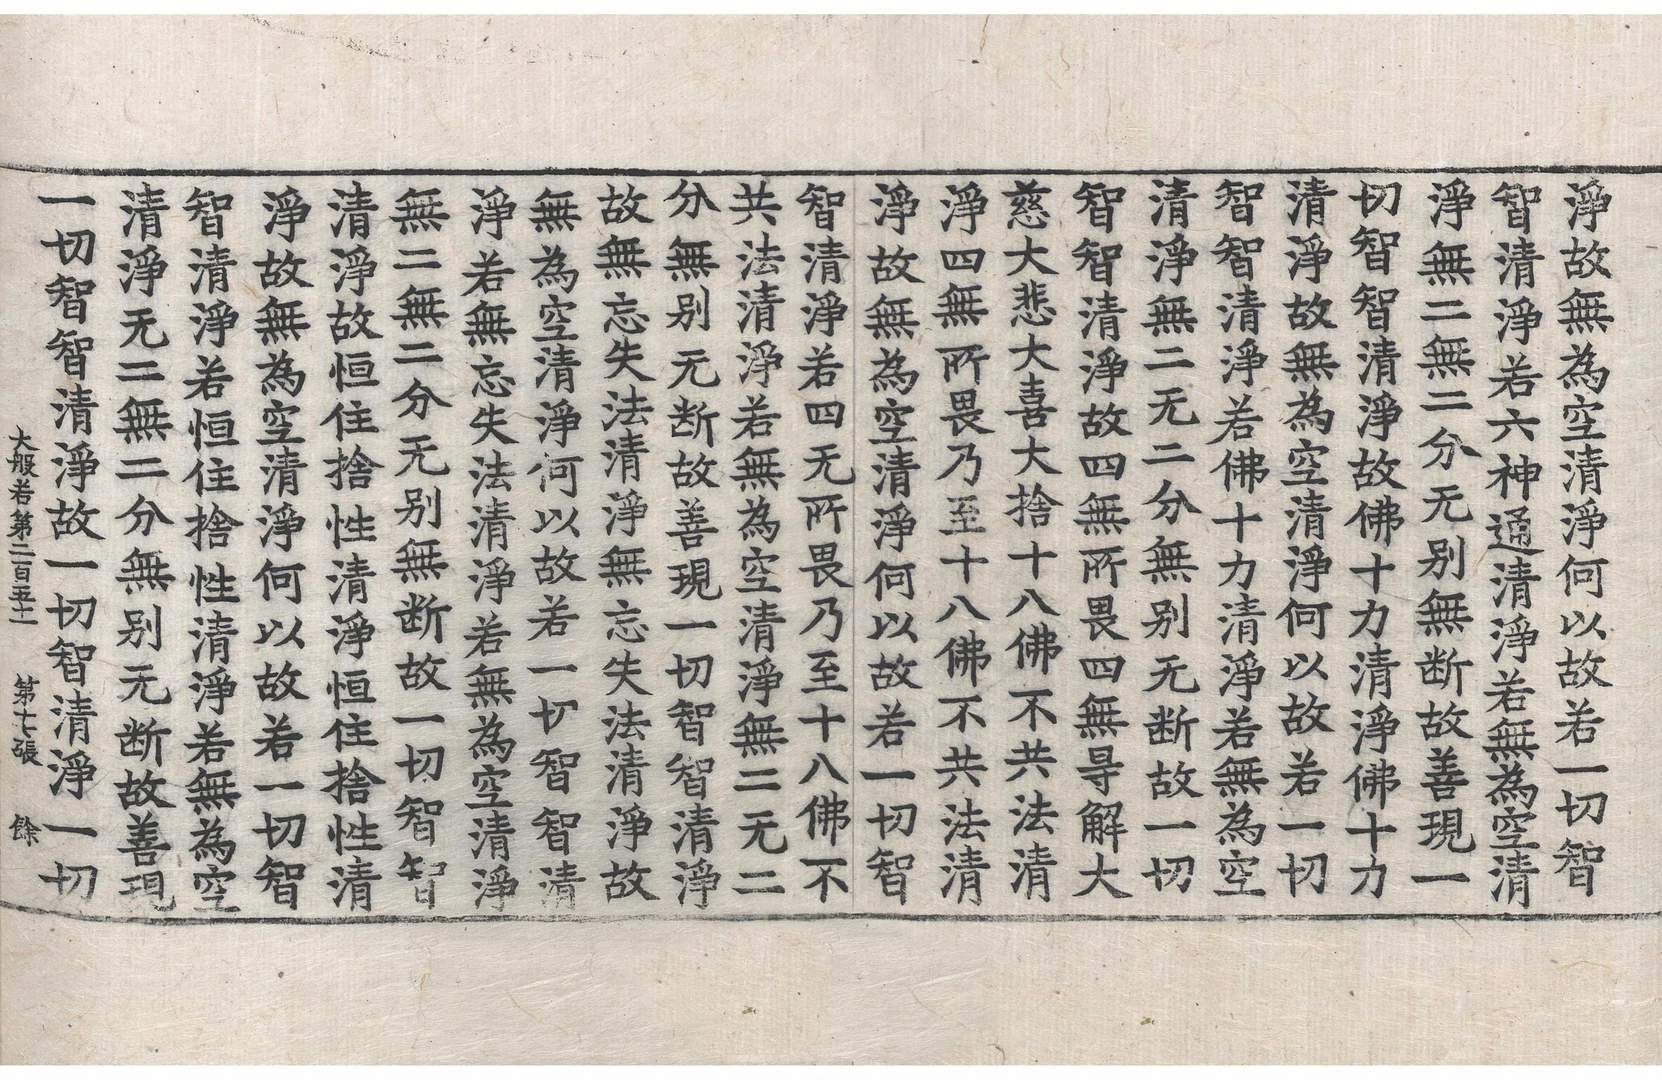 淨故無為空清淨何以故若一切智
智清淨若六神通清淨若無為空清
淨無二無二分无别無断故善現一
切智智清淨故佛十力清淨佛十力
清淨故無為空清淨何以故若一切
智智清淨若佛十力清淨若無為空
清淨無二无二分無别无断故一切
智智清淨故四無所畏四無导解大
慈大悲大喜大捨十八佛不共法清
淨四無所畏乃至十八佛不共法清
淨故無為空清淨何以故若一切智
智清淨若四无所畏乃至十八佛不
共法清淨若無為空清淨無二无二
分無别无断故善現一切智智清淨
故無忘失法清淨無忘失法清淨故
無為空清淨何以故若一切智智清
淨若無忘失法清淨若無為空清淨
無二無二分无别無断故一切智智
清淨故恒住捨性清淨恒住捨性清
淨故無為空清淨何以故若一切智
智清淨若恒住捨性清淨若無為空
清淨无二無二分無别无断故善現
一切智智清淨故一切智清淨一切
大般若第二百五十一 第七張 餘